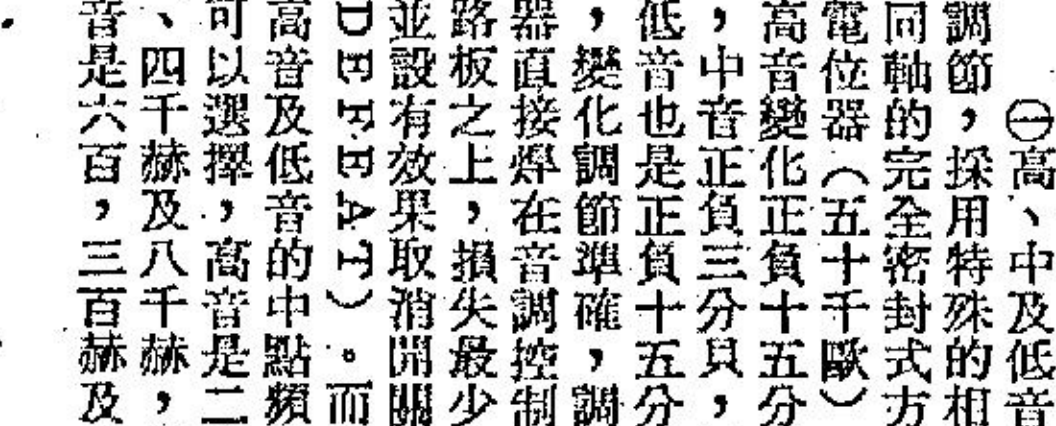 ㊀高、中及低音
調節，採用特殊的相
同軸的完全密封式方
電位器（五十千歐）
高音變化正負十五分
，中音正負三分貝，
低音也是正負十五分
，變化調節準確，調
器直接焊在音調控制
路板之上，損失最少
並設有效果取消開關
DEFEAT）。而
高音及低音的中點頻
可以選擇，高音是二
、四千赫及八千赫，
音是六百，三百赫及